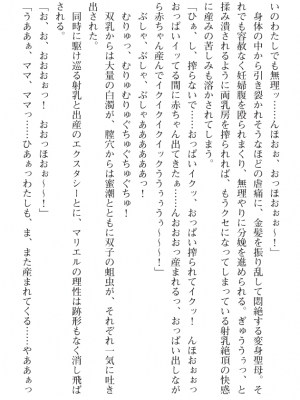 いのわたしでも無理ッ……んほおぉ、おっほぉぉ～！」
　身体の中から引き裂かれそうなほどの虐痛に、金髪を振り乱して悶絶する変身聖母。そ
れでも容赦なく妊婦腹を殴られまくり、無理やりに分娩を進められる。ぎゅううぅっ、と
揉み潰されるように両乳房を搾られれば、もうクセになってしまっている射乳絶頂の快感
に産みの苦しみも溶かされてしまう。
「ひぁぁ、し、搾らないで……おっぱいイクッ、おっぱい搾られてイクッ！　んほおぉぉっ
おっぱいイッてる間に赤ちゃん出てきたぁ……んおおおっ産まれるっ、おっぱい出しなが
ら赤ちゃん産んでイクイクイクイックううぅぅぅ～～～～！」
　ぶしゃ、ぶしゃ、ぶしゃああああああっ！
　むりゅっ、むりゅむりゅぐちゅぐちゅぐちゅ！
　双乳からは大量の白濁が、膣穴からは蜜潮とともに双子の蛆虫が、それぞれ一気に吐き
出された。
　同時に駆け巡る射乳と出産のエクスタシーに、マリエルの理性は跡形もなく消し飛ば
される。
「お、お、おおおぉっ！　おおっほぉぉ～！」
「うああぁ、ママ、ママっ……ひああっわたしも、ま、また産まれてくる……やああぁっ